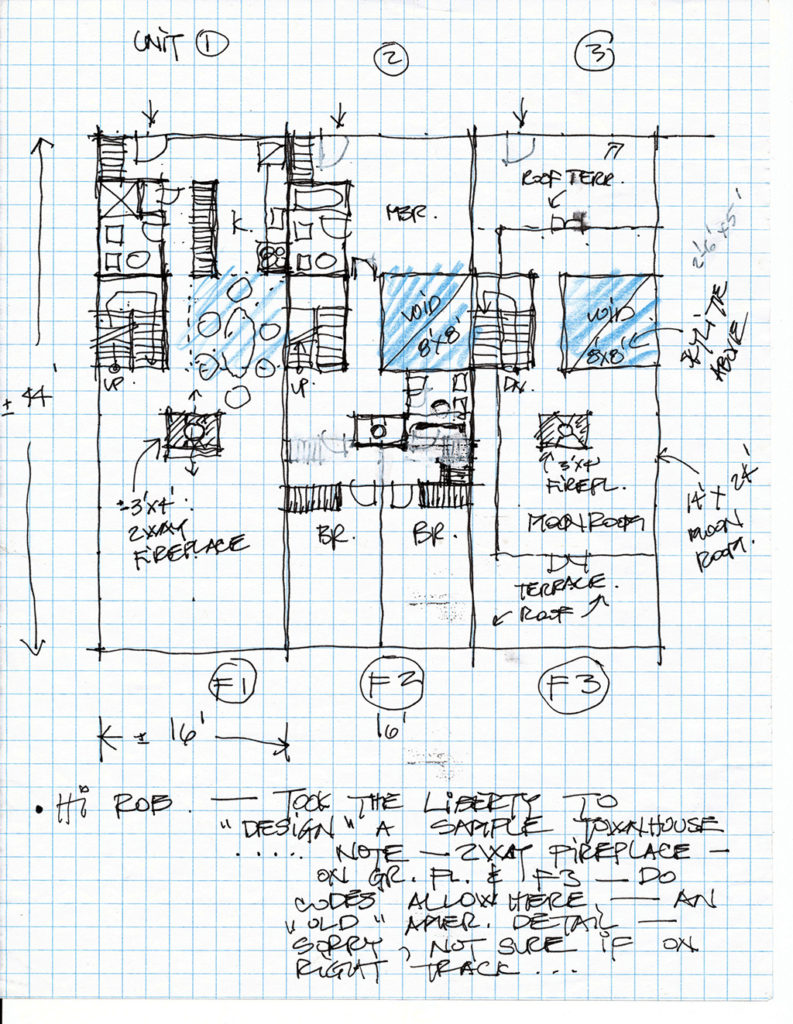 UNIT 1
2
3
ROOF TERR.
K.
MBR.
VOID
8'X8'
VOID
8'X8'
2'6"x5'
SKYLITE
ABOVE
UP.
UP.
DN.
± 44'
±3'X4'
2WAY
FIREPLACE
BR.
BR.
3'X4'
FIREPL.
MOONROOM
14' X 24'
MOON
ROOM.
TERRACE.
ROOF
F1
F2
F3
± 16'
16'
• Hi ROB. — TOOK THE LIBERTY TO
"DESIGN" A SAMPLE TOWNHOUSE
..... NOTE — 2WAY FIREPLACE —
ON GR. FL. & F3 — DO
CODES ALLOW HERE, — AN
"OLD" AMER. DETAIL —
SORRY, NOT SURE IF ON
RIGHT TRACK...